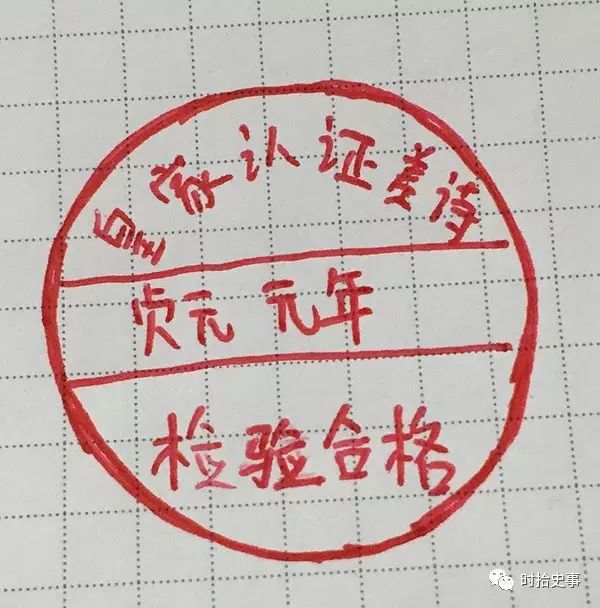 皇家认证差诗
贞元 元年
检验合格
时拾史事